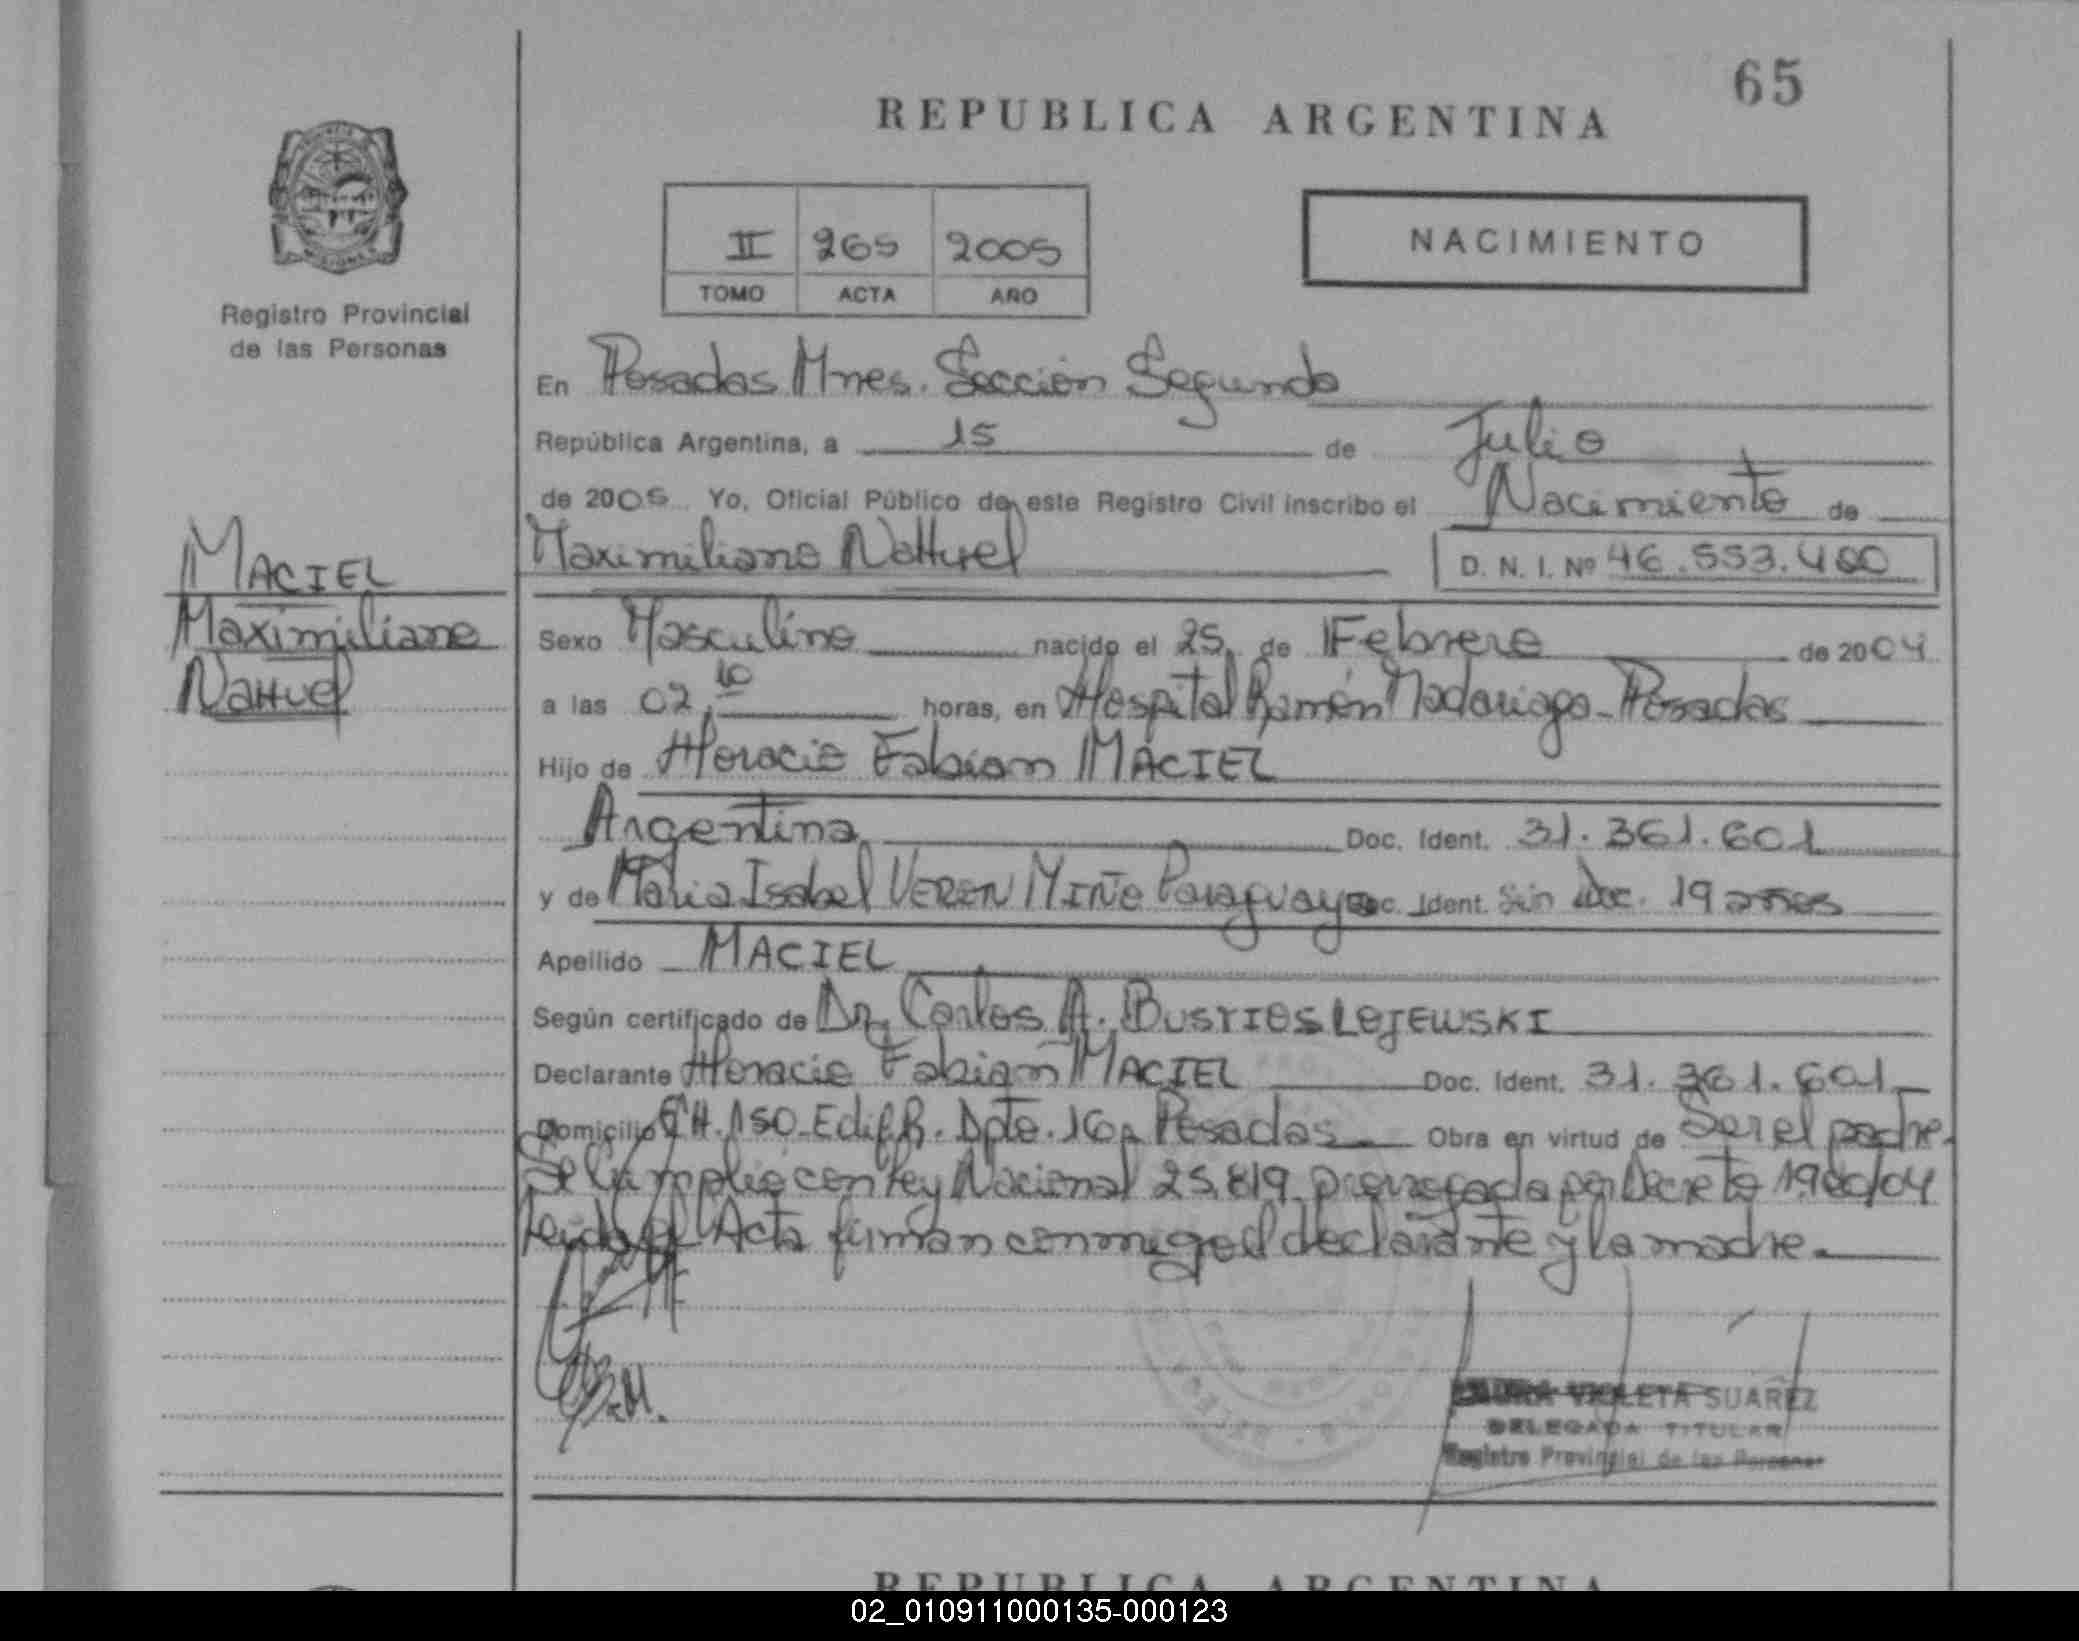 65
REPUBLICA ARGENTINA
NACIMIENTO
II 265 2005
TOMO ACTA AÑO
Registro Provincial
de las Personas
En Posadas Mnes. Sección Segunda
República Argentina, a 15 de Julio
de 2005 Yo, Oficial Público de este Registro Civil inscribo el Nacimiento de
MACIEL
Maximiliano
NaHuel
Maximiliano NaHuel D. N. I. Nº 46.553.400
Sexo Masculino nacido el 25 de Febrero de 2004
a las 02,10 horas, en Hospital Ramón Madariaga - Posadas
Hijo de Horacio Fabian MACIEL
Argentina Doc. Ident. 31.361.601
y de Maria Isabel VEREN MIÑO Paraguaya Doc. Ident. Sin Doc. 19 años
Apellido MACIEL
Según certificado de Dr. Carlos A. BUSTIOS LOJEWSKI
Declarante Horacio Fabian MACIEL Doc. Ident. 31.361.601
Domicilio CH. 150 Edif. B. Dpto. 16 Posadas Obra en virtud de Ser el padre.
Se cumplio con Ley Nacional 25.819 prorrogada por Decreto 1900/04
Leida el Acta firman conmigo el declarante y la madre.
VIOLETA SUAREZ
DELEGADA TITULAR
Registro Provincial de las Personas
REPUBLICA ARGENTINA
02_010911000135-000123